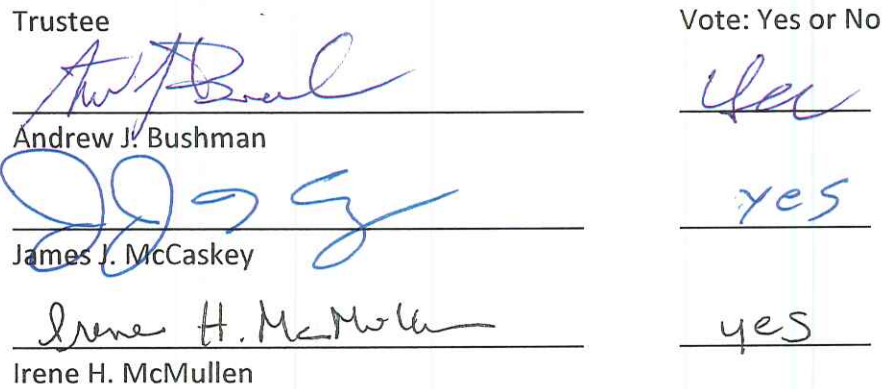 Trustee Vote: Yes or No
Yes
Andrew J. Bushman
yes
James J. McCaskey
Irene H. McMullen yes
Irene H. McMullen